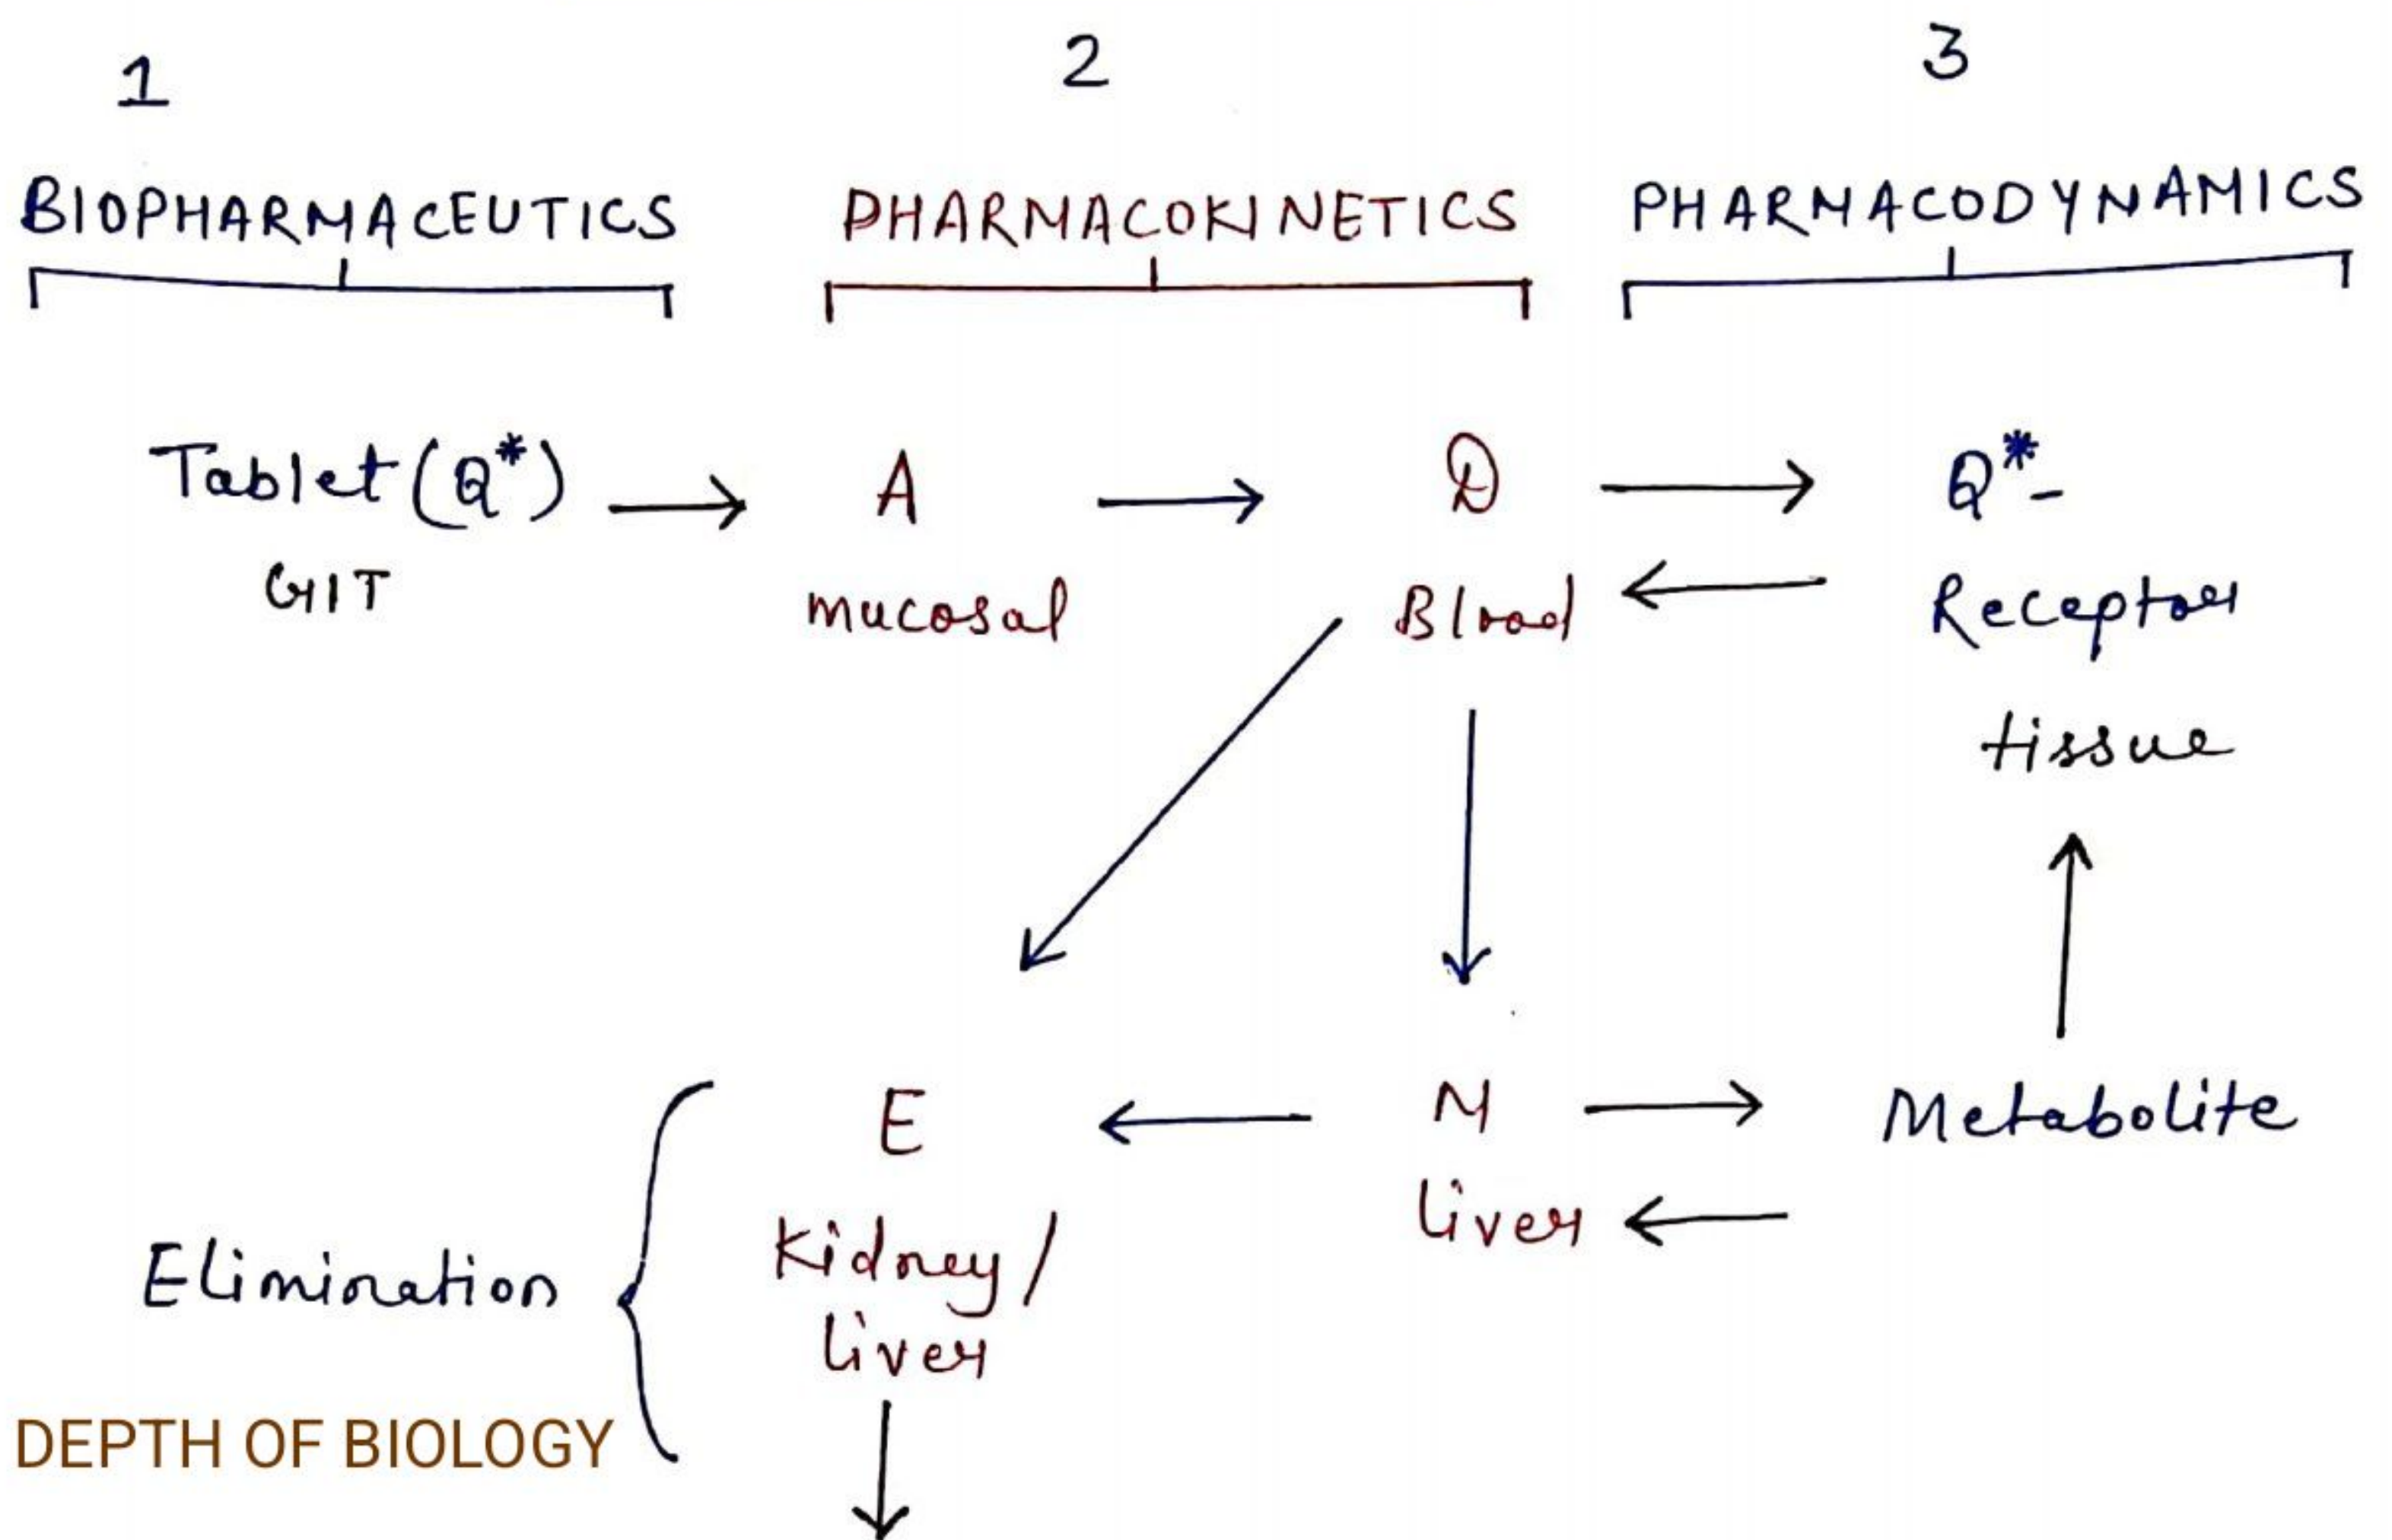 1 2 3
BIOPHARMACEUTICS PHARMACOKINETICS PHARMACODYNAMICS
Tablet (Q*) → A → D → Q*-
GIT mucosal Blood ← Receptor
tissue
E ← M → Metabolite
Kidney / liver ←
liver
Elimination
DEPTH OF BIOLOGY